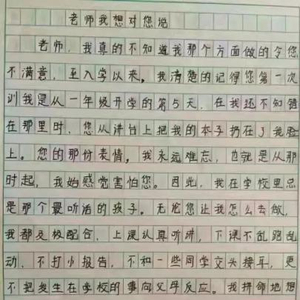 老师我想对您说
老师，我真的不知道我那个方面做的令您
不满意，至入学以来。我清楚的记得您第一次
训我是从一年级开学的第5天，在我还不知错
在那里时，您从讲台上把我的本子扔在了我脸
上。您的那份表情，我永远难忘，也就是从那
时起，我始感觉害怕您。因此，我在学校里总
是那个最听话的孩子。无论您让我怎么去做，
我都及极配合，上课认真听讲，下课不乱跑乱
动，不打小报告，不和一些同学交头接耳，更
不把发生在学校的事向父母反应。我拼命地想